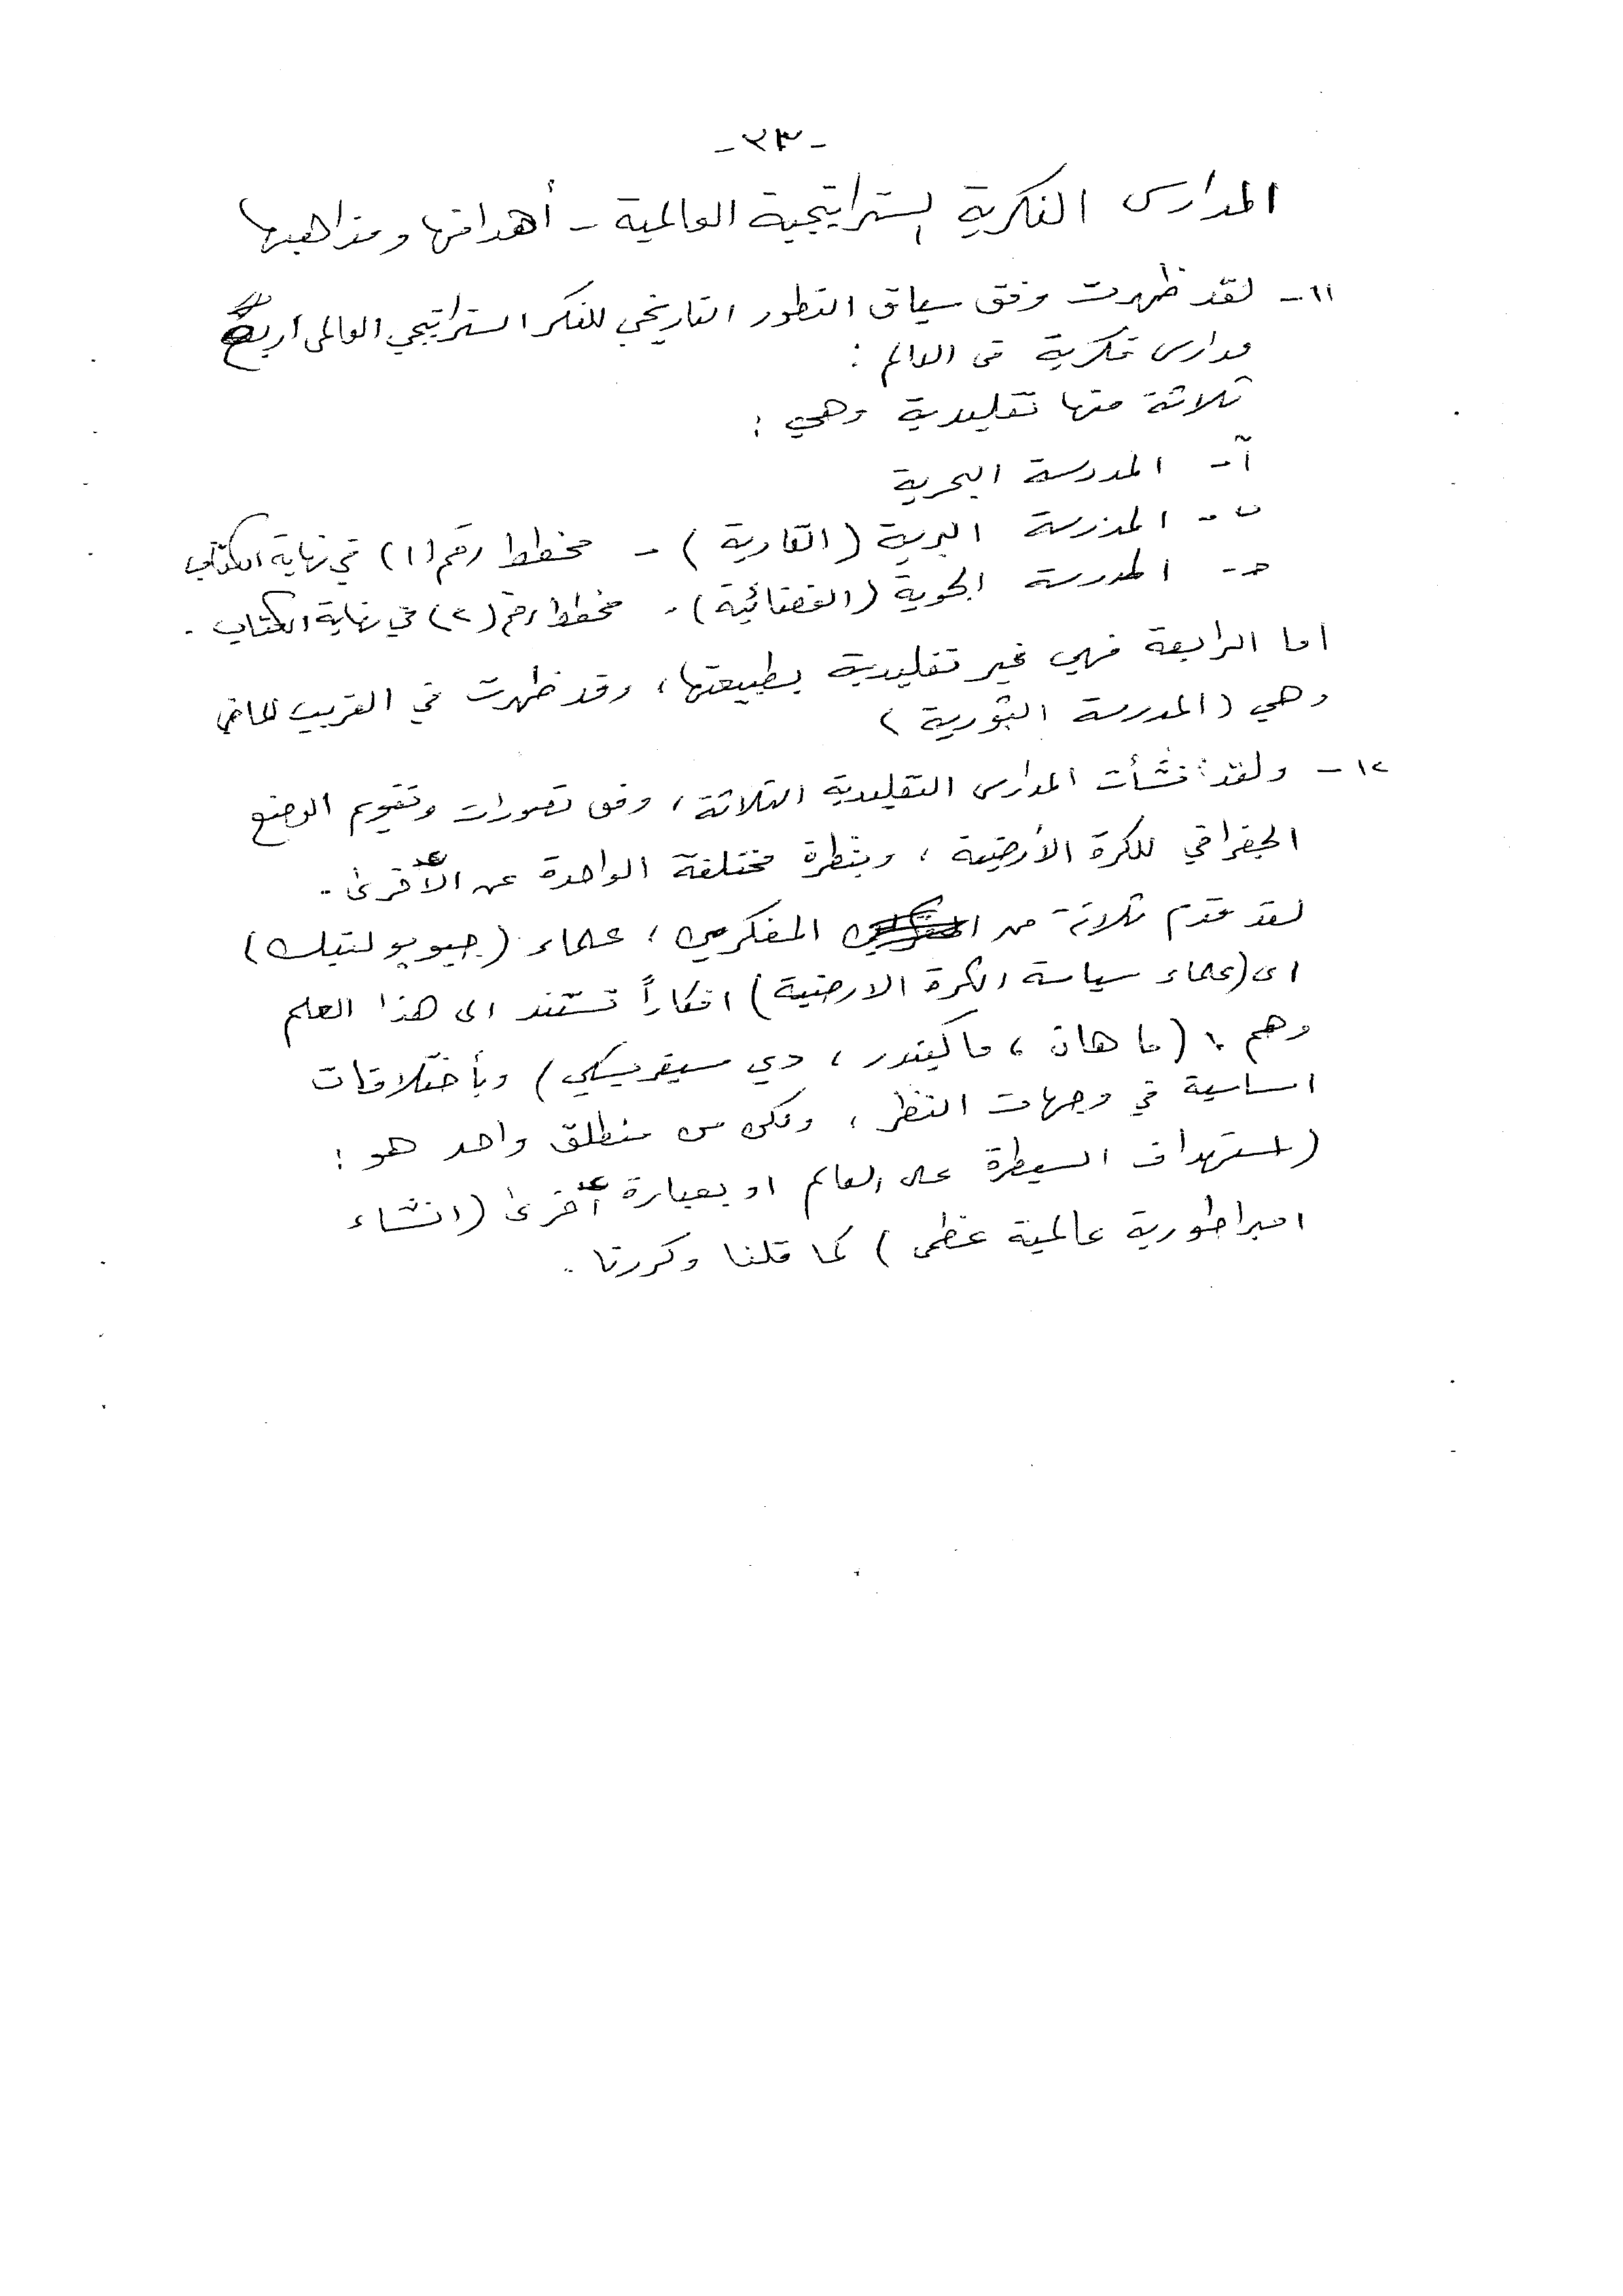 -٢٣-
المدارس الفكرية الستراتيجية العالمية - أهدافها ومذاهبها
١١- لقد ظهرت وفق سياق التطور التاريخي للفكر الستراتيجي العالمى اربع
مدارس فكرية فى العالم :
ثلاثة منها تقليدية وهي :
آ- المدرسة البحرية
ب- المدرسة البرية (القارية) - مخطط رقم (١) في نهاية الكتاب
حـ- المدرسة الجوية (الفضائية) - مخطط رقم (٢) في نهاية الكتاب .
اما الرابعة فهي غير تقليدية بطبيعتها، وقد ظهرت في القريب الماضي
وهي (المدرسة الثورية)
١٢- ولقد نشأت المدارس التقليدية الثلاثة، وفق تصورات وتقويم الوضع
الجغرافي للكرة الأرضية ، وبنظرة مختلفة الواحدة عن الأخرى .
لقد قدم ثلاثة من المفكرين ، علماء (جيوبولتيك)
اى (علماء سياسة الكرة الارضية) افكاراً تستند الى هذا العلم
وهم : (ماهان ، ماكيندر ، دي سيفرسكي) وبأختلافات
اساسية في وجهات النظر ، ولكن من منطلق واحد هو :
(استهداف السيطرة على العالم او بعبارة أخرى (انشاء
امبراطورية عالمية عظمى) كما قلنا وكررنا .